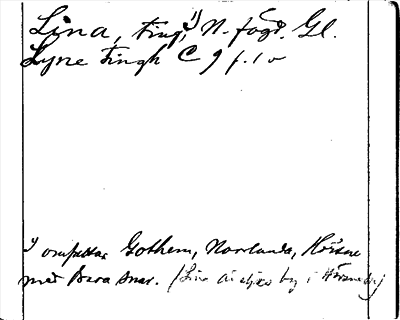 Lina, ting, 1) N. fögd. Gl.
Lyne tingh C 9 f. 1 v
1) omfattar Gothem, Norrlanda, Hörsne
med Bara snar. (Lina är by i Hörsne